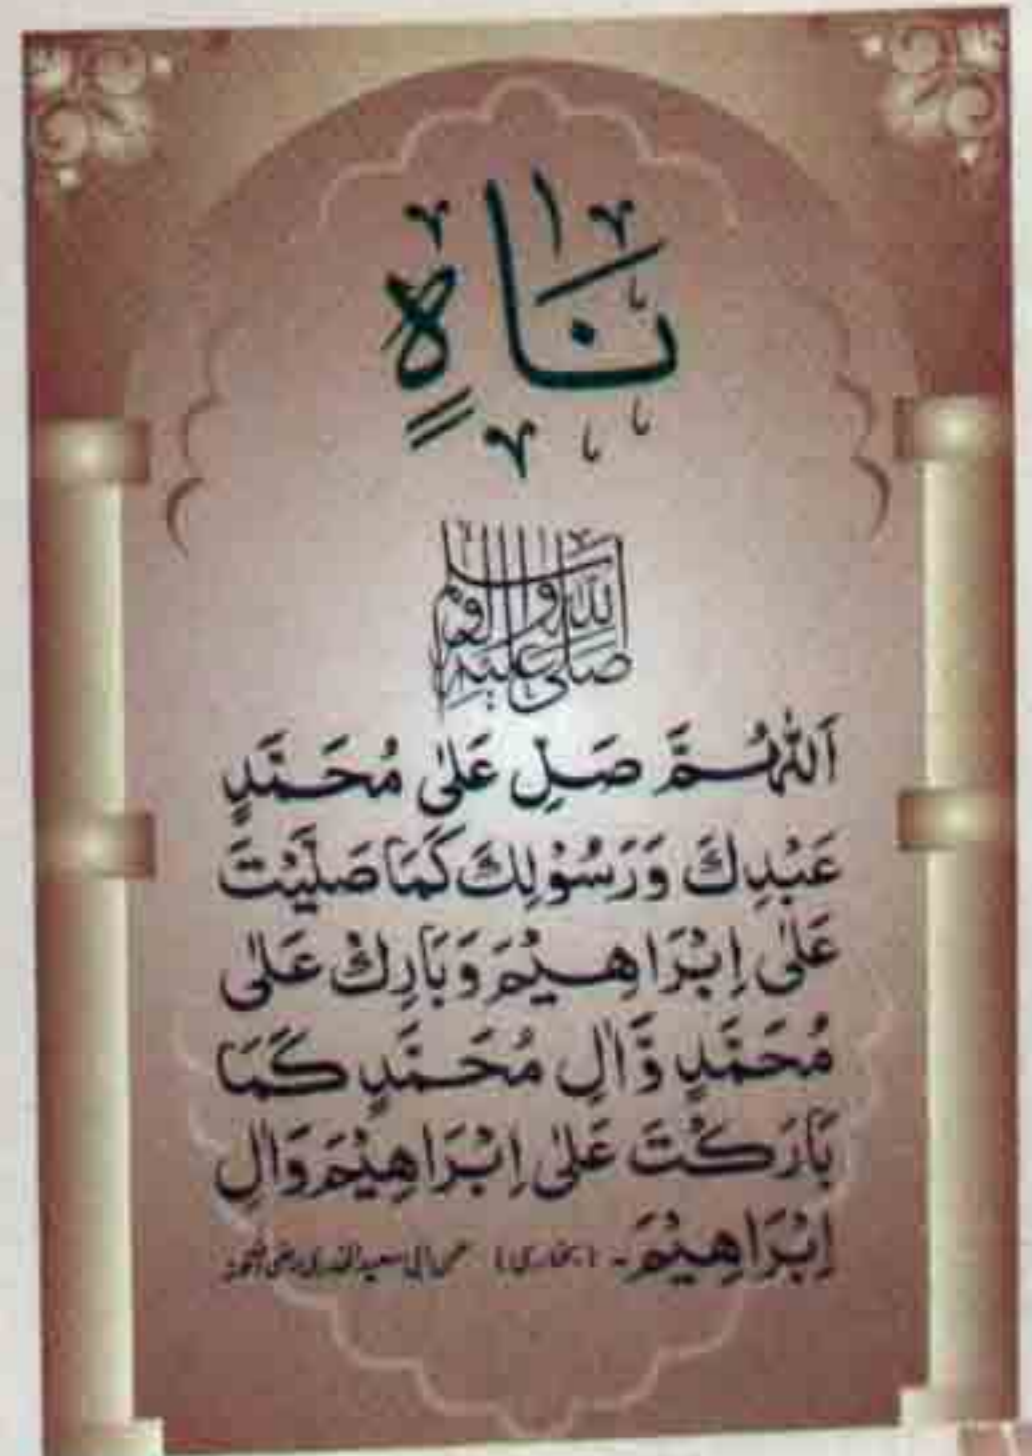 نَاهٍ
صلى الله عليه وآله وسلم
اَللّٰهُمَّ صَلِّ عَلٰى مُحَمَّدٍ
عَبْدِكَ وَرَسُوْلِكَ كَمَا صَلَّيْتَ
عَلٰى اِبْرَاهِيْمَ وَبَارِكْ عَلٰى
مُحَمَّدٍ وَّاٰلِ مُحَمَّدٍ كَمَا
بَارَكْتَ عَلٰى اِبْرَاهِيْمَ وَاٰلِ
اِبْرَاهِيْمَ۔ (بخاری) عن ابی سعید الخدری رضی اللہ عنہ